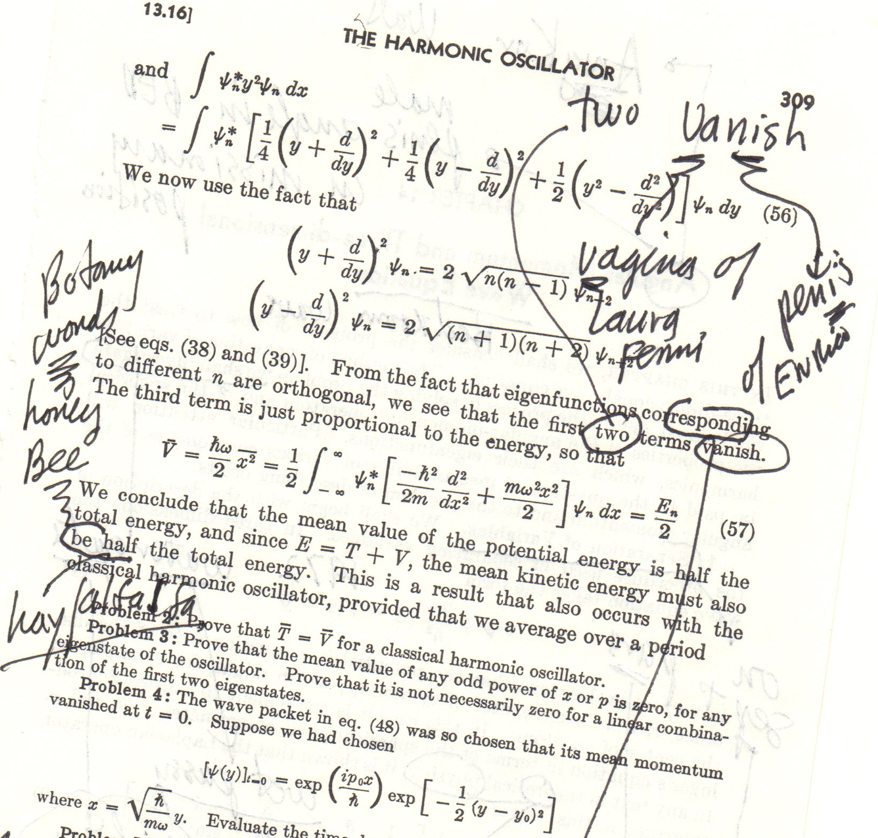 13.16]
THE HARMONIC OSCILLATOR
309
and ∫ ψₙ*y²ψₙ dx
two vanish
= ∫ ψₙ* [ 1/4 (y + d/dy)² + 1/4 (y − d/dy)² + 1/2 (y² − d²/dy²) ] ψₙ dy (56)
We now use the fact that
(y + d/dy)² ψₙ = 2 √n(n − 1) ψₙ₋₂
vagina of
Laura
Fermi
penis
of Enrico
(y − d/dy)² ψₙ = 2 √(n + 1)(n + 2) ψₙ₊₂
Botany
words
honey
Bee
[See eqs. (38) and (39)]. From the fact that eigenfunctions corresponding
to different n are orthogonal, we see that the first two terms vanish.
The third term is just proportional to the energy, so that
V̄ = ħω/2 x̄² = 1/2 ∫₋∞^∞ ψₙ* [ −ħ²/2m d²/dx² + mω²x²/2 ] ψₙ dx = Eₙ/2 (57)
We conclude that the mean value of the potential energy is half the
total energy, and since E = T + V, the mean kinetic energy must also
be half the total energy. This is a result that also occurs with the
classical harmonic oscillator, provided that we average over a period
hay/alfalfa
Problem 2: Prove that T̄ = V̄ for a classical harmonic oscillator.
Problem 3: Prove that the mean value of any odd power of x or p is zero, for any
eigenstate of the oscillator. Prove that it is not necessarily zero for a linear combina-
tion of the first two eigenstates.
Problem 4: The wave packet in eq. (48) was so chosen that its mean momentum
vanished at t = 0. Suppose we had chosen
[ψ(y)]ₜ₌₀ = exp (ip₀x/ħ) exp [ −1/2 (y − y₀)² ]
where x = √(ħ/mω) y. Evaluate the time